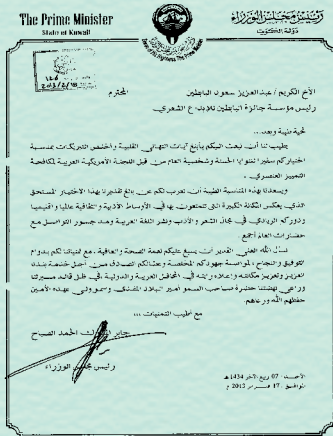 The Prime Minister
State of Kuwait
رئيس مجلس الوزراء
دولة الكويت
الأخ الكريم / عبدالعزيز سعود البابطين المحترم
رئيس مؤسسة جائزة البابطين للإبداع الشعري
تحية طيبة وبعد...
يطيب لنا أن نبعث إليكم بأبلغ آيات التهاني القلبية وأخلص التبريكات بمناسبة
اختياركم سفيرا للنوايا الحسنة وشخصية العام من قبل اللجنة الأمريكية العربية لمكافحة
التمييز العنصري.
ويسعدنا بهذه المناسبة الطيبة أن نعرب لكم عن بالغ تقديرنا بهذا الاختيار المستحق
الذي يعكس المكانة الكبيرة التي تتمتعون بها في الأوساط الأدبية والثقافية عالميا وإقليميا
ودوركم الريادي في مجال الشعر والأدب ونشر اللغة العربية ومد جسور التواصل مع
حضارات العالم أجمع
نسأل الله العلي القدير أن يسبغ عليكم نعمة الصحة والعافية، مع تمنياتنا لكم بدوام
التوفيق والنجاح، لمواصلة جهودكم المخلصة وعطائكم الصادق من أجل خدمة بلدنا
العزيز وتعزيز مكانته وإعلاء رايته في المحافل العربية والدولية، في ظل قائد مسيرتنا
وراعي نهضتنا حضرة صاحب السمو أمير البلاد المفدى، وسمو ولي عهده الأمين
حفظهم الله ورعاهم.
مع أطيب التمنيات...
جابر المبارك الحمد الصباح
رئيس مجلس الوزراء
الأحد: 07 ربيع الآخر 1434 هـ
الموافق: 17 فبراير 2013 م